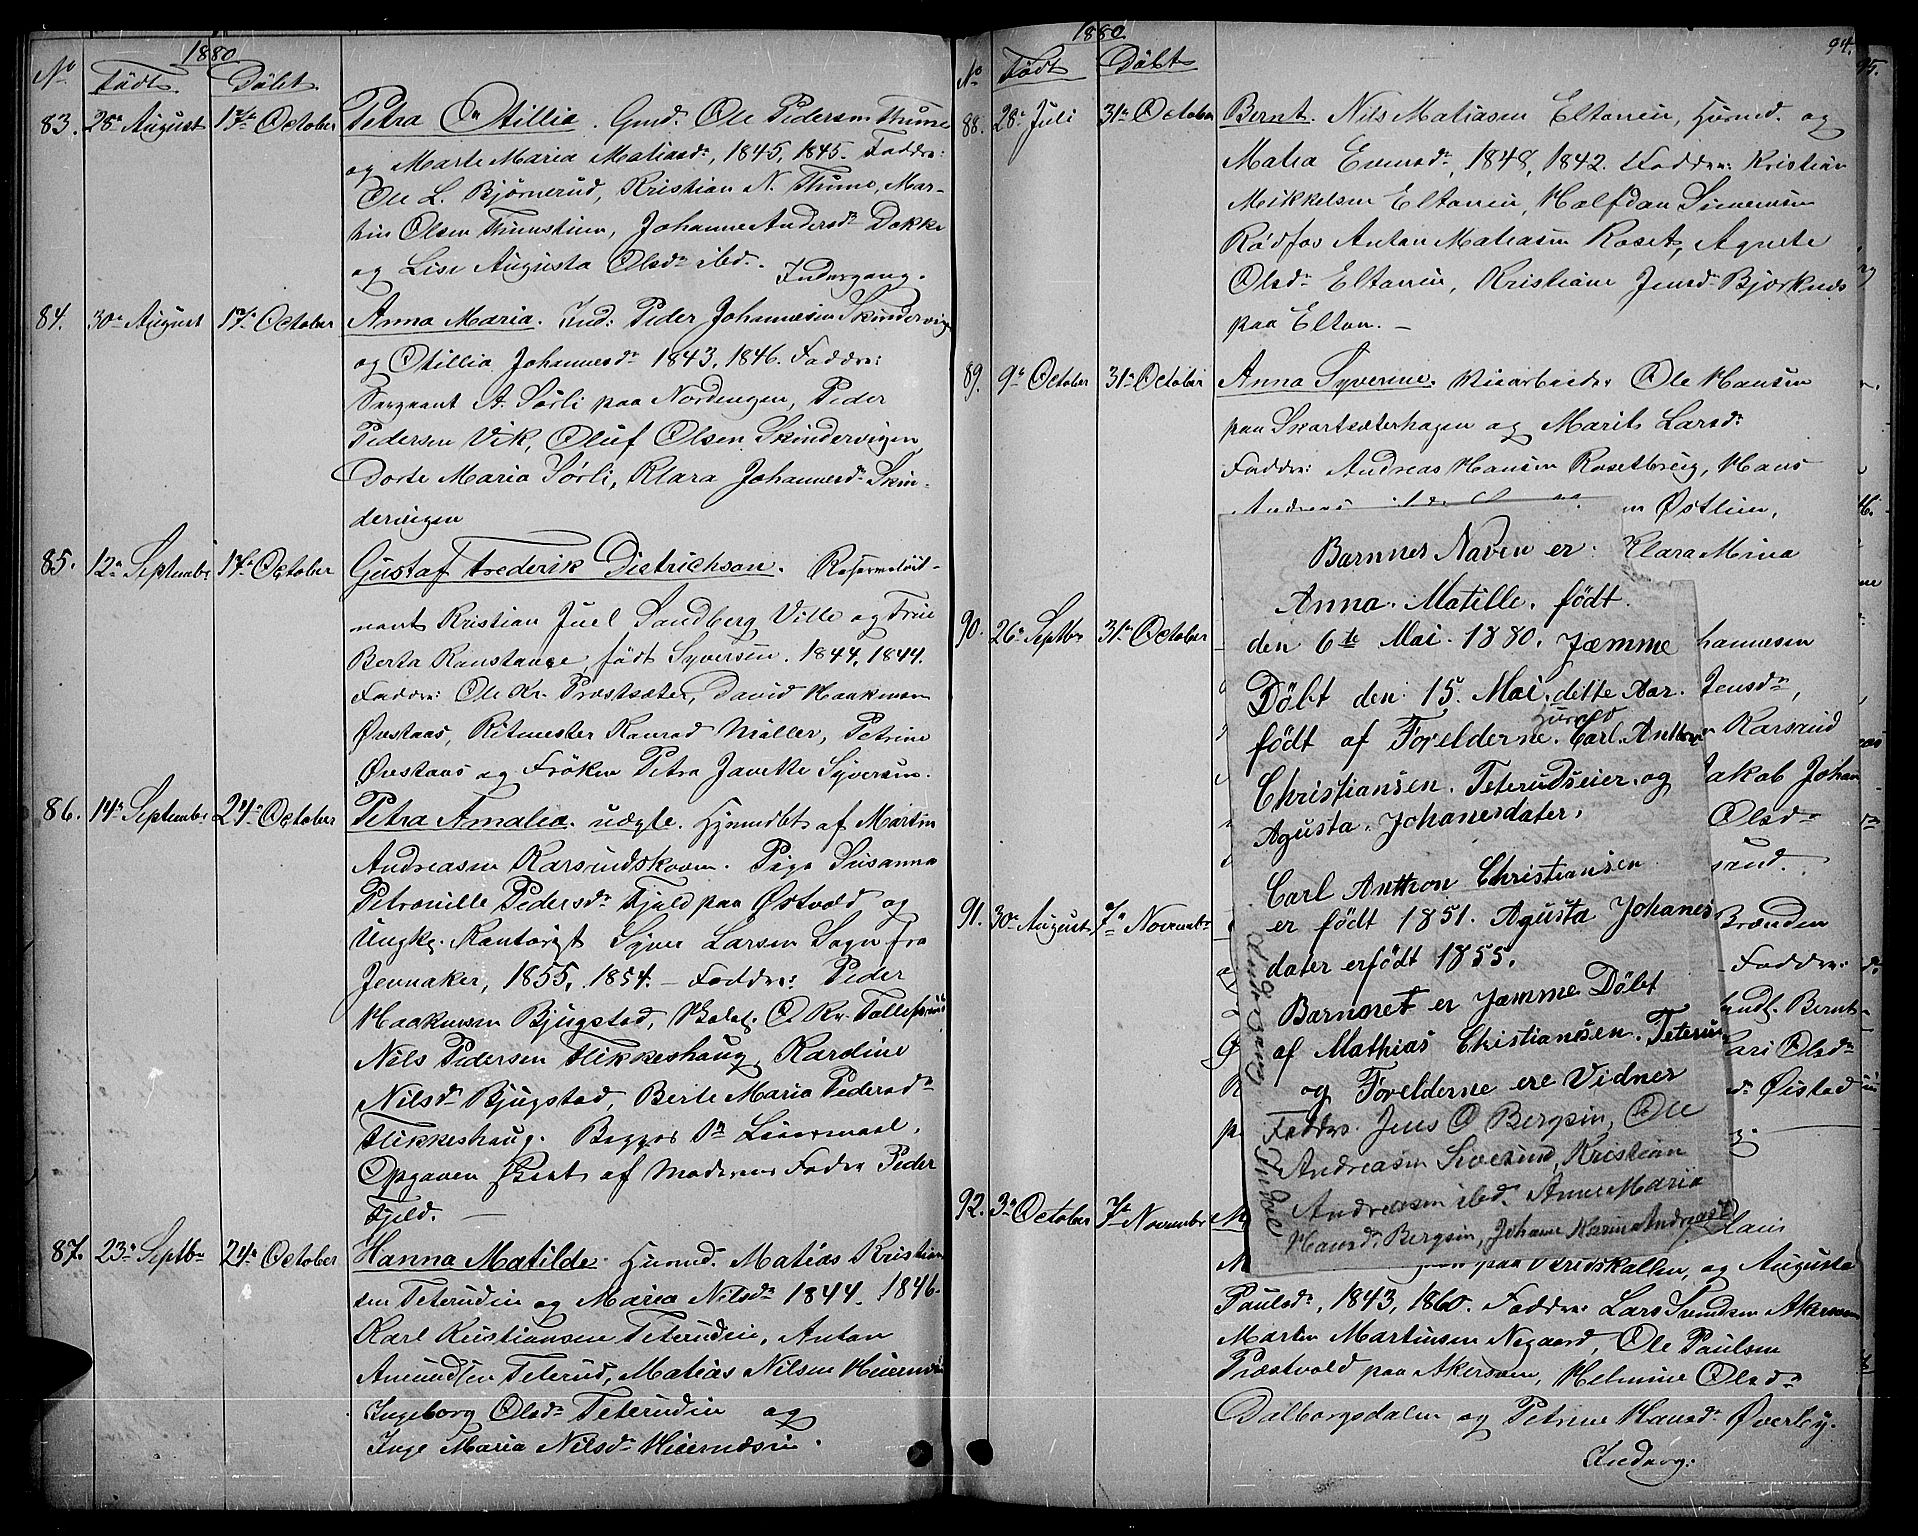 1880
No Født Døbt
83. 28de August 17de October Petra Otillia. Gmd. Ole Pedersen Thune
og Marte Maria Matiasdr, 1845, 1845. Faddre:
Ole L. Bjørnerud, Kristian N. Thune, Mar-
tin Olsen Thunstuen, Johanne Andersdr Dokke
og Lise Augusta Olsdr ibd.
Indergang.
84. 30de August 17de October Anna Maria. Ind: Peder Johannesen Skindervigen
og Otillia Johannesdr 1843, 1846. Faddre:
Sergeant A. Sørli paa Nordengen, Peder
Pedersen Vik, Oluf Olsen Skindervigen
Dorte Maria Sørli, Klara Johannesdr Skin-
dervigen
85. 12te Septembr 17de October Gustaf Frederik Dietrichson.
nant Kristian Juel Sandberg Ville og Frue
Berta Konstance født Syversen. 1844, 1844.
Faddre: Ole Kr. Præstsæter, David Haakensen
Ørstaas, Ritmester Konrad Møller, Petrine
Ørstaas og Frøken Petra Javette Syversen.
86. 14de Septembr 24de October Petra Amalia. uægte. Hjemdøbt af Martin
Andreasen Karsrudskoven. Pige Susanna
Petronille Pedersdr Fjeld paa Østvold og
Ungk. Kontorist Syver Larsen Sogn fra
Jevnaker, 1855, 1854. — Faddre: Peder
Haakensen Bjugstad, O. Kr. Tollefsrud
Nils Pedersen Flikkeshaug, Karoline
Nilsdr Bjugstad, Berte Maria Pedersdr
Flikkeshaug. Begges 1ste Leiermaal.
Opgaven skeet af Moderens Fader Peder
Fjeld. —
87. 23de Septbr 24de October Hanna Matilde. Huusmd. Matias Kristian
sen Teterudeie og Maria Nilsdr 1844. 1846.
Karl Kristiansen Teterudeie, Anton
Amundsen Teterud, Matias Nilsen
Ingeborg Olsdr Teterudeie og
Inge Maria Nilsdr
1880
94.
95.
No Født Døbt
88. 28de Juli 31te October Bernt. Nils Matiasen Eltoneie, Huusmd. og
Matea Evensdr, 1848, 1842. Faddre: Kristian
Mikkelsen Eltoneie, Halfdan Simensen
Rødfos Anton Matiasen Roset, Agnete
Olsdr Eltoneie, Kristiane Jensdr Bjørknes
paa Elton. —
89. 9de October 31te October Anna Syverine. Veiarbeider Ole Hansen
paa Svartsæterhagen og Marit Larsdr
Faddre: Andreas Hansen Rosetbreig, Hans
Østlien,
Klara Mina
90. 26de Septbr 31te October
hannesen
Jensdr,
Karsrud
Jakob Johan
Olsdr
91. 30te August 7de Novembr
Brænden
Faddre:
Bernt
Olsdr
Øistad
92. 3de October 7de Novembr
paa og Augusta
Paulsdr, 1843, 1860. Faddre: Lars Svendsen Akersven
Martin Martinsen Negaard, Ole Paulsen
Præstvold paa Akersven, Helmine Olsdr
Dalborgsdalen og Petrine Hansdr Øverby.
Inderg:
Barnnes Naven er:
Anna. Matille. født.
den 6te Mai. 1880. Jæmme
Døbt den 15. Mai. dette Aar.
født af Forelderne. Huusfo Carl. Anthon
Christiansen. Teterudseier. og
Agusta. Johanesdater.
Carl Anthon Christiansen
er født 1851. Agusta Johanes
dater erfødt 1855.
Barnaret er Jæmme Døbt
af Mathias Christianssen. Teterud
og Forelderne ere Vidner
Faddre. Jens O Bergsin, Ole
Andreasen Siversind, Kristian
Andreasen ibd. Anne Maria
Hansdr Bergsin, Johane Karine Andreasdr